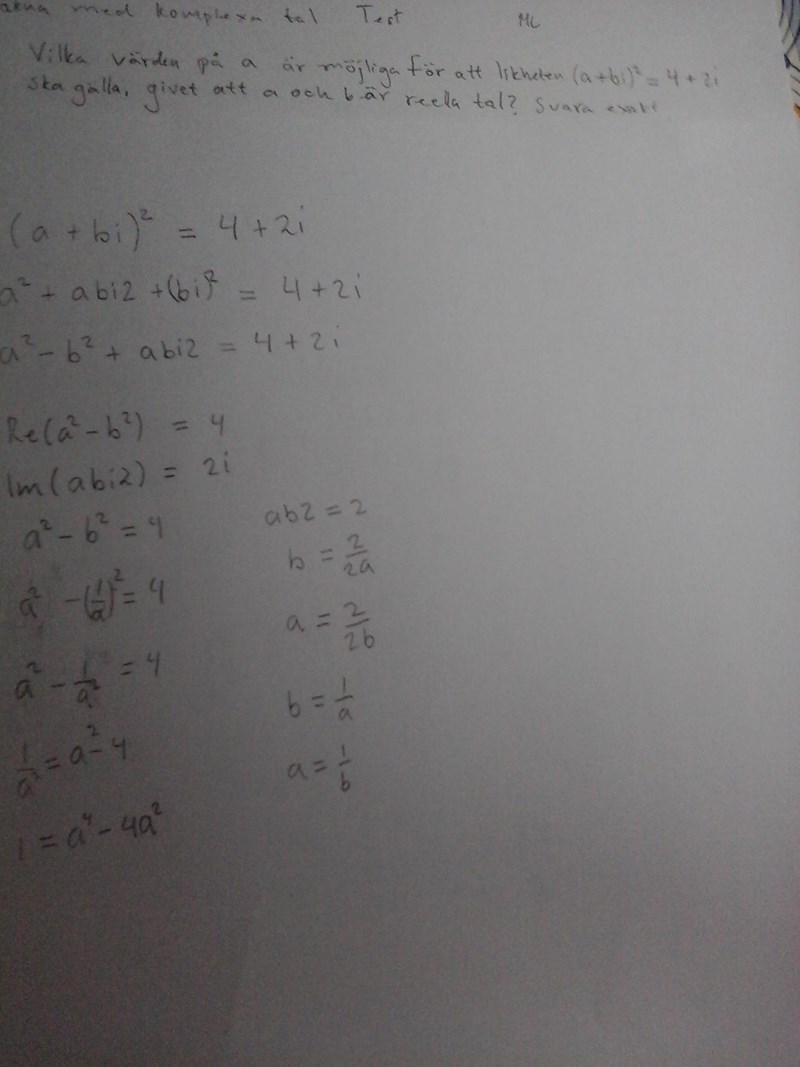 med komplexa tal Test
ML
Vilka värden på a är möjliga för att likheten (a+bi)² = 4 + 2i
ska gälla, givet att a och b är reella tal? Svara exakt
(a + bi)² = 4 + 2i
a² + abi2 + (bi)² = 4 + 2i
a² - b² + abi2 = 4 + 2i
Re(a² - b²) = 4
Im(abi2) = 2i
a² - b² = 4
a² - (1/a)² = 4
a² - 1/a² = 4
1/a² = a² - 4
1 = a⁴ - 4a²
ab2 = 2
b = 2/2a
a = 2/2b
b = 1/a
a = 1/b